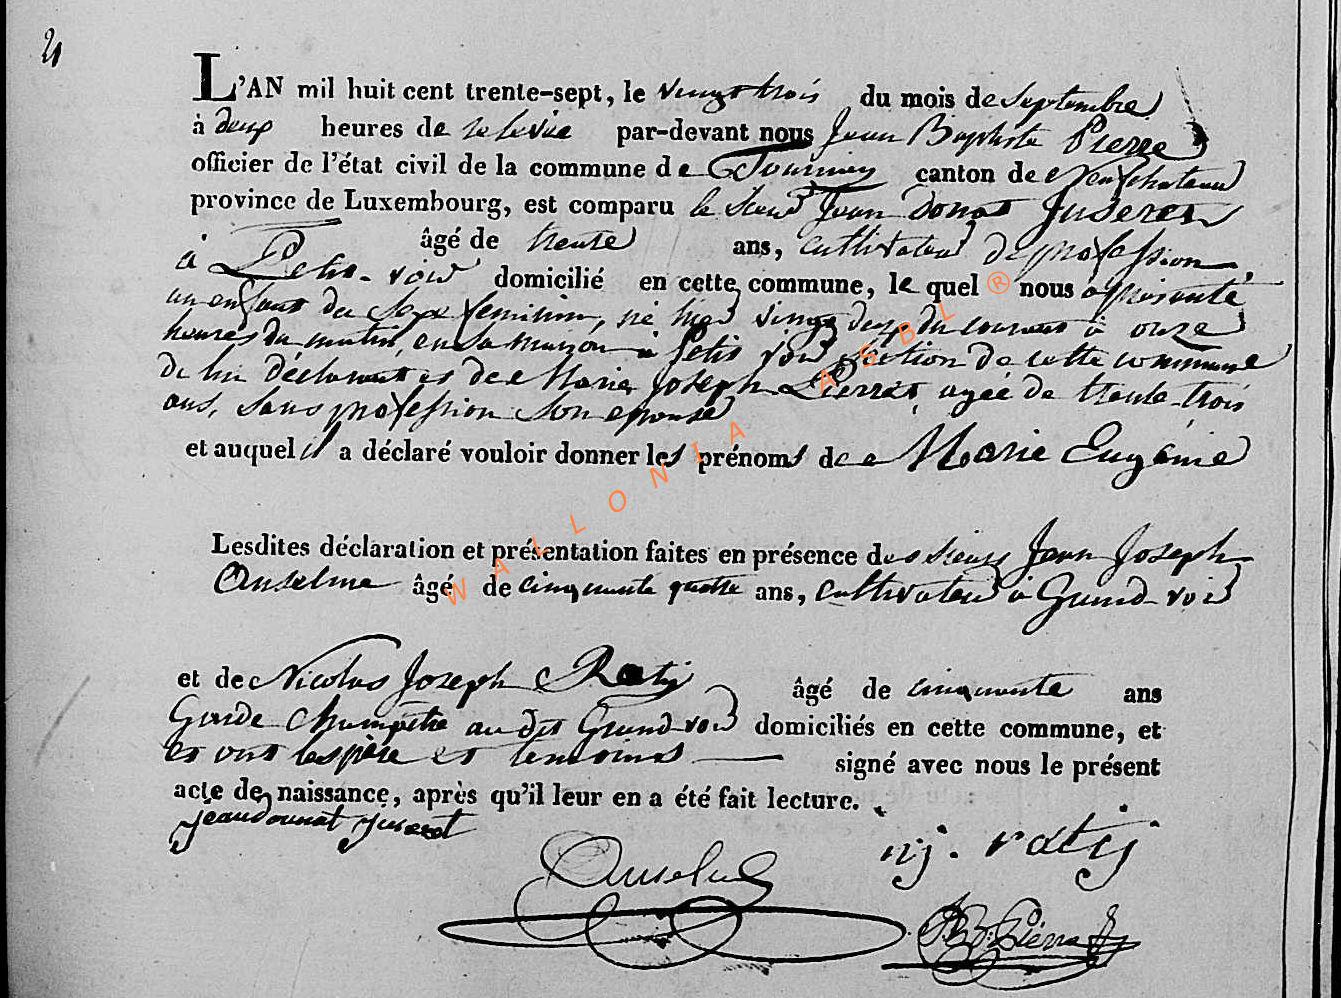 21
L'AN mil huit cent trente-sept, le vingt trois du mois de Septembre
à deux heures de relevée par-devant nous Jean Baptiste Pierre
officier de l'état civil de la commune de Tournay canton de Neufchateau
province de Luxembourg, est comparu le Sieur Jean Donat Juseret
âgé de trente ans, cultivateur de profession,
à Petit-voir domicilié en cette commune, le quel nous a présenté
un enfant du sexe féminin, né hier vingt deux du courant à onze
heures du matin, en sa maison à Petit voir section de cette commune
de lui déclarant et de Marie Joseph Pierret, agée de trente-trois
ans, sans profession son epouse
et auquel il a déclaré vouloir donner les prénoms de Marie Eugénie
Lesdites déclaration et présentation faites en présence des sieurs Jean Joseph
Anselme âgé de cinquante quatre ans, cultivateur à Grand-voir
et de Nicolas Joseph Ratij âgé de cinquante ans
Garde Champêtre au dit Grand-voir domiciliés en cette commune, et
et ont les père et temoins signé avec nous le présent
acte de naissance, après qu'il leur en a été fait lecture.
jeandounat juseret
nj. ratij
Anselme
JB. Pierre
WALLONIA ASBL ®